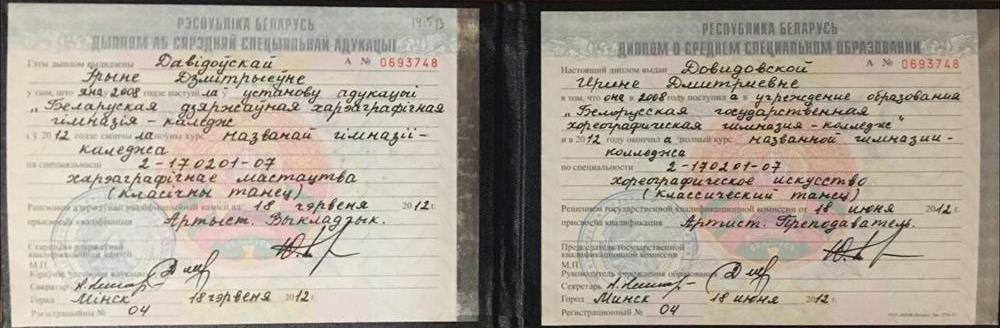 РЭСПУБЛІКА БЕЛАРУСЬ
ДЫПЛОМ АБ СЯРЭДНЯЙ СПЕЦЫЯЛЬНАЙ АДУКАЦЫІ
Гэты дыплом выдадзены Давідоўскай А № 0693748
Ірыне Дзмітрыеўне
у тым, што яна 2008 годзе паступіла ў установу адукацыі
„Беларуская дзяржаўная харэаграфічная
гімназія - каледж
і ў 2012 годзе скончыла поўны курс названай гімназіі-
каледжа
па спецыяльнасці 2-170201-07
харэаграфічнае мастацтва
(класічны танец)
Рашэннем дзяржаўнай кваліфікацыйнай камісіі ад 18 чэрвеня 2012 г.
прысвоена кваліфікацыя Артыст. Выкладчык.
Старшыня дзяржаўнай
кваліфікацыйнай камісіі
М.П.
Кіраўнік установы адукацыі
Сакратар
Горад Мінск 18 чэрвеня 2012 г.
Рэгістрацыйны № 04
РЕСПУБЛИКА БЕЛАРУСЬ
ДИПЛОМ О СРЕДНЕМ СПЕЦИАЛЬНОМ ОБРАЗОВАНИИ
Настоящий диплом выдан Довидовской А № 0693748
Ирине Дмитриевне
в том, что она в 2008 году поступила в учреждение образования
„Белорусская государственная
хореографическая гимназия - колледж"
и в 2012 году окончила полный курс названной гимназии-
колледжа
по специальности 2-170201-07
хореографическое искусство
(классический танец)
Решением государственной квалификационной комиссии от 18 июня 2012 г.
присвоена квалификация Артист. Преподаватель.
Председатель государственной
квалификационной комиссии
М.П.
Руководитель учреждения образования
Секретарь
Город Минск 18 июня 2012 г.
Регистрационный № 04